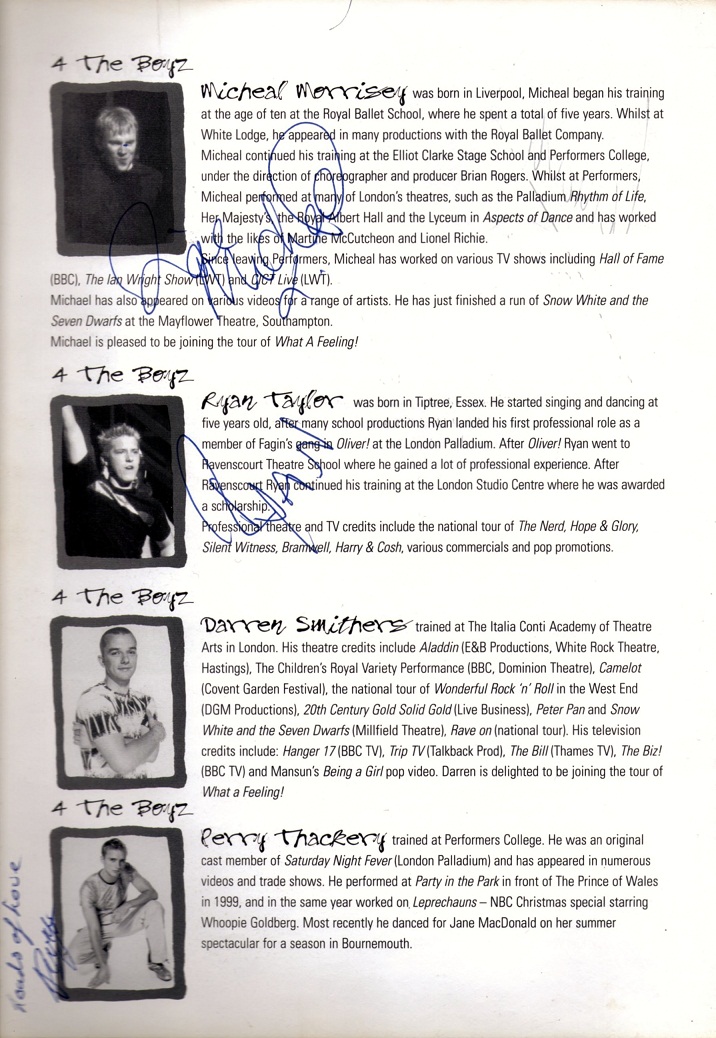 4 The Boyz
Micheal Morrisey was born in Liverpool, Micheal began his training
at the age of ten at the Royal Ballet School, where he spent a total of five years. Whilst at
White Lodge, he appeared in many productions with the Royal Ballet Company.
Micheal continued his training at the Elliot Clarke Stage School and Performers College,
under the direction of choreographer and producer Brian Rogers. Whilst at Performers,
Micheal performed at many of London's theatres, such as the Palladium Rhythm of Life,
Her Majesty's, the Royal Albert Hall and the Lyceum in Aspects of Dance and has worked
with the likes of Martine McCutcheon and Lionel Richie.
Since leaving Performers, Micheal has worked on various TV shows including Hall of Fame
(BBC), The Ian Wright Show (LWT) and CD:UK Live (LWT).
Michael has also appeared on various videos for a range of artists. He has just finished a run of Snow White and the
Seven Dwarfs at the Mayflower Theatre, Southampton.
Michael is pleased to be joining the tour of What A Feeling!
4 The Boyz
Ryan Taylor was born in Tiptree, Essex. He started singing and dancing at
five years old, after many school productions Ryan landed his first professional role as a
member of Fagin's gang in Oliver! at the London Palladium. After Oliver! Ryan went to
Ravenscourt Theatre School where he gained a lot of professional experience. After
Ravenscourt Ryan continued his training at the London Studio Centre where he was awarded
a scholarship.
Professional theatre and TV credits include the national tour of The Nerd, Hope & Glory,
Silent Witness, Bramwell, Harry & Cosh, various commercials and pop promotions.
Ryan
4 The Boyz
Darren Smithers trained at The Italia Conti Academy of Theatre
Arts in London. His theatre credits include Aladdin (E&B Productions, White Rock Theatre,
Hastings), The Children's Royal Variety Performance (BBC, Dominion Theatre), Camelot
(Covent Garden Festival), the national tour of Wonderful Rock 'n' Roll in the West End
(DGM Productions), 20th Century Gold Solid Gold (Live Business), Peter Pan and Snow
White and the Seven Dwarfs (Millfield Theatre), Rave on (national tour). His television
credits include: Hanger 17 (BBC TV), Trip TV (Talkback Prod), The Bill (Thames TV), The Biz!
(BBC TV) and Mansun's Being a Girl pop video. Darren is delighted to be joining the tour of
What a Feeling!
4 The Boyz
Perry Thackery trained at Performers College. He was an original
cast member of Saturday Night Fever (London Palladium) and has appeared in numerous
videos and trade shows. He performed at Party in the Park in front of The Prince of Wales
in 1999, and in the same year worked on Leprechauns – NBC Christmas special starring
Whoopie Goldberg. Most recently he danced for Jane MacDonald on her summer
spectacular for a season in Bournemouth.
of Love